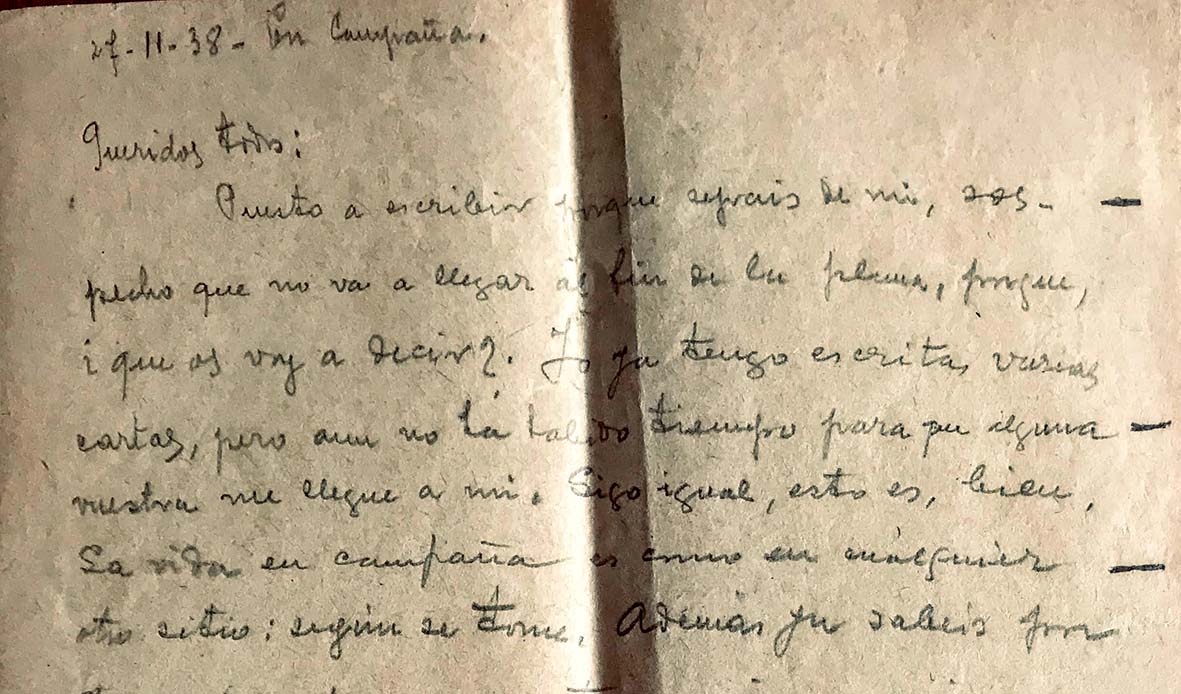 27-11-38- En Campaña.
Queridos todos:
Puesto a escribir porque sepais de mi, sos-
pecho que no va a llegar al fin de la plana, porque,
¿que os voy a decir?. Yo ya tengo escritas varias
cartas, pero aun no ha habido tiempo para que alguna
vuestra me llegue a mi. Sigo igual, esto es, bien.
La vida en campaña es como en cualquier
otro sitio: según se tome. Además ya sabeis por